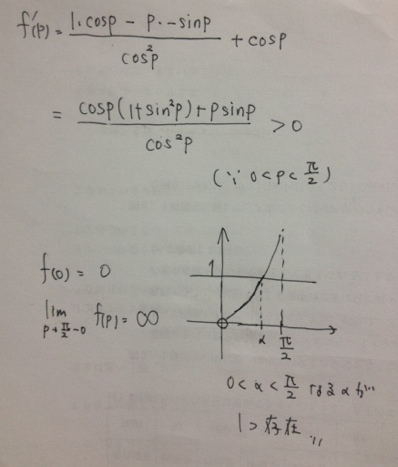 f'(p) = (1·cosp − p·−sinp) / cos²p + cosp
= (cosp(1+sin²p)+psinp) / cos²p > 0
(∵ 0<p<π/2)
f(0) = 0
lim p→π/2−0 f(p) = ∞
1
α π/2
0<α<π/2 なるαが
1つ存在,,